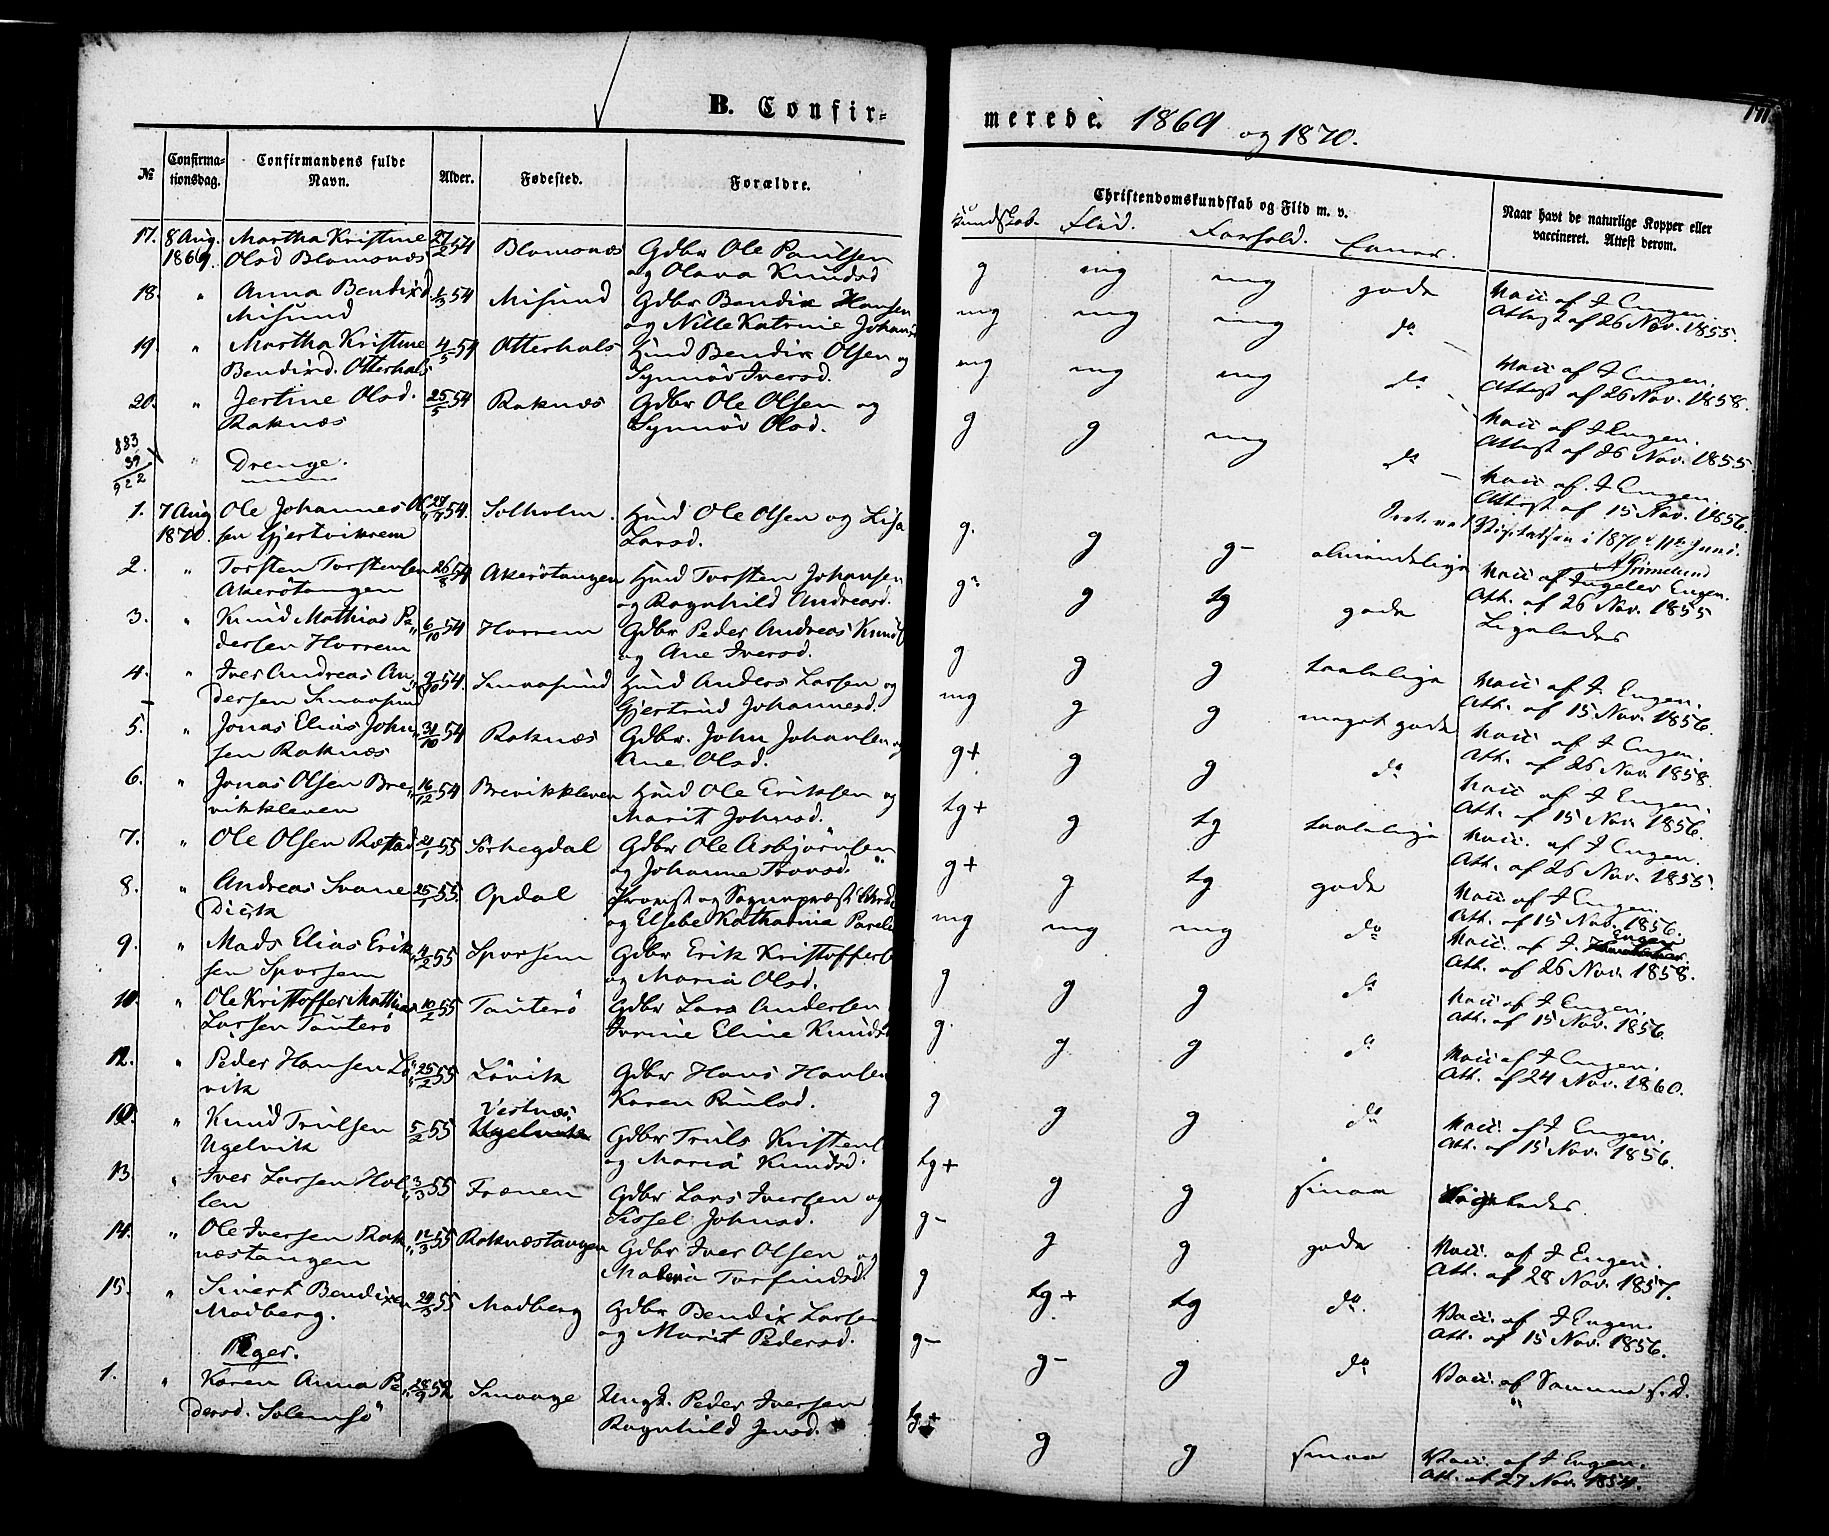 B. Confir=
merede. 1869 og 1870.
171
№ Confirma-tionsdag. Confirmandens fulde Navn. Alder. Fødested. Forældre.
Christendomskundskab og Flid m. v.
Kundskab. Flid. Forhold. Evner.
Naar havt de naturlige Kopper eller vaccineret. Attest derom.
17. 8 Aug. Martha Kristine 27/2 54 Blomsnæs Gdbr Ole Paulsen g mg mg gode Vacc af J Engen.
1869. Olsd Blomsnæs og Olava Knudsd Attest af 26 Nov. 1855.
18. " Anna Bendixd 1/3 54 Misund Gdbr Bendix Hansen mg mg mg do Vacc af J Engen.
Misund og Nille Katrine Johans Attest af 26 Nov. 1858.
19. " Martha Kristine 4/5 54 Otterhals Hmd Bendix Olsen og mg mg mg do Vacc af J Engen.
Bendixd. Otterhals Synnöv Iversd. Attest af 26 Nov. 1855.
20. " Jertine Olsd. 25/5 54 Raknæs Gdbr Ole Olsen og g g mg do Vacc af J Engen.
Raknæs Synnöv Olsd. Attest af 15 Nov. 1856.
883
39
922
" Drenge.
Visitatsen i 1870 d. 11te Juni.
Grimelund
1. 7 Aug Ole Johannes Ol 27/7 54. Solholm. Hmd Ole Olsen og Lisa g. g g- almindelige Vacc af Ingelev Engen.
1870. sen Gjertvikrem Larsd. Att. af 26 Nov. 1855
2. " Torsten Torstensen 26/8 54 Akerötangen Hmd Torsten Johansen g g tg gode Ligeledes
Akerötangen og Ragnhild Andreasd.
3. " Knud Mathias Pe 6/10 54 Harrem Gdbr Peder Andreas Knuds g g g taalelige Vacc af J Engen.
dersen Harrem og Ane Iversd. Att. af 15 Nov. 1856.
4. " Iver Andreas An 9/10 54. Smaasund Hmd Anders Larsen og mg g g meget gode Vacc af J Engen.
dersen Smaasund Gjertrud Johannesd. Att. af 26 Nov. 1858.
5. " Jonas Elias John 31/10 54 Raknæs Gdbr. John Johansen og g+ g g do Vacc af J Engen.
sen Raknæs Ane Olsd. Att. af 15 Nov. 1856.
6. " Jonas Olsen Bre 16/12 54 Brevikkleven Hmd Ole Eriksen og tg+ g tg taalelige Vacc. af J Engen.
vikkleven Marit Johnsd. Att. af 26 Nov. 1855.
7. " Ole Olsen Ræstad 21/1 55 Sörhegdal Gdbr Ole Asbjörnsen g+ g tg gode Vacc af J Engen.
og Johanne Toorsd. Att. af 15 Nov. 1856.
8. " Andreas Svane 25/1 55. Opdal Provst og Sognepræst mg mg mg do Vacc. af J. Engen
Dick og Elsebe Katharina Att. af 26 Nov. 1858.
9. " Mads Elias Erik 4/2 55 Sporsem Gdbr Erik Kristoffers g g g do Vacc af J Engen.
sen Sporsem og Maria Olsd. Att. af 15 Nov. 1856.
10. " Ole Kristoffer Mathias 10/2 55 Tauterö Gdbr Lars Andersen g. g g do Vacc af J Engen.
Larsen Tauterö Ivrine Eline Knuds Att. af 24 Nov. 1860.
12. " Peder Hansen Lö 25/2 55 Lövik Gdbr Hans Hansen g g g do Vacc af J Engen.
vik Karen Paulsd. Att. af 15 Nov. 1856.
" Knud Trulsen 5/2 55 Vestnæs. Gdbr Truls Kristens tg+ g g smaa Ligeledes.
Ugelvik Ugelviken og Maria Knudsd.
13 " Iver Larsen Hol 3/3 55 Frænen Gdbr Lars Iversen og g- g g gode Vacc. af J Engen.
len Sissel Johnsd. Att. af 28 Nov. 1857.
14. " Ole Iversen Rak 12/3 55 Raknæstangen Gdbr Iver Olsen og g tg+ tg do. Vacc. af J Engen.
næstangen Malena Torfindsd. Att. af 15 Nov. 1856.
15. " Sivert Bendixen 29/3 55 Madberg Gdbr Bendix Larsen g- g- g do Vacc. af Samme s. D.
Madberg. og Marit Pedersd. "
Piger.
1. " Karen Anna Pe 28/9 52 Smaage Ungk. Peder Iversen tg+ g g smaa Vacc. af J Engen.
dersd. Solemsö Ragnhild Jensd. Att. af 27 Nov. 1854.